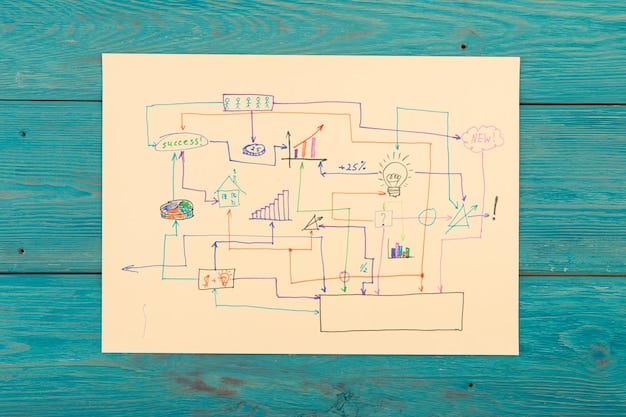 success!
NEW!
+25%
?
!
½
$ +